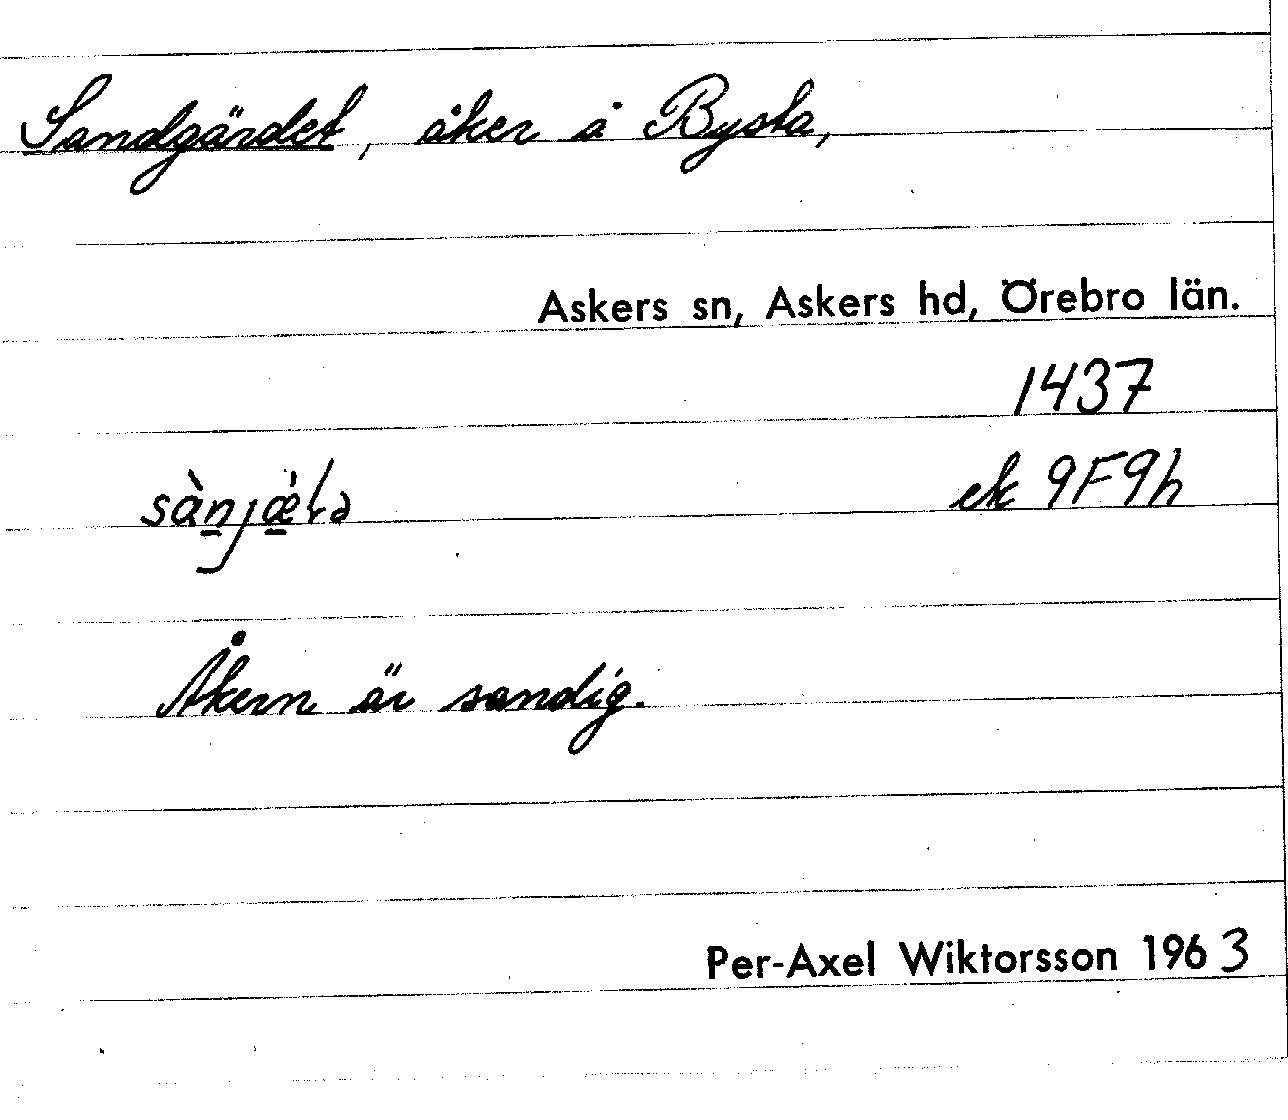 Sandgärdet, åker å Bysta,
Askers sn, Askers hd, Örebro län.
1437
sàn̠jǽ̠ɭə ek 9F9h
Åkern är sandig.
Per-Axel Wiktorsson 1963